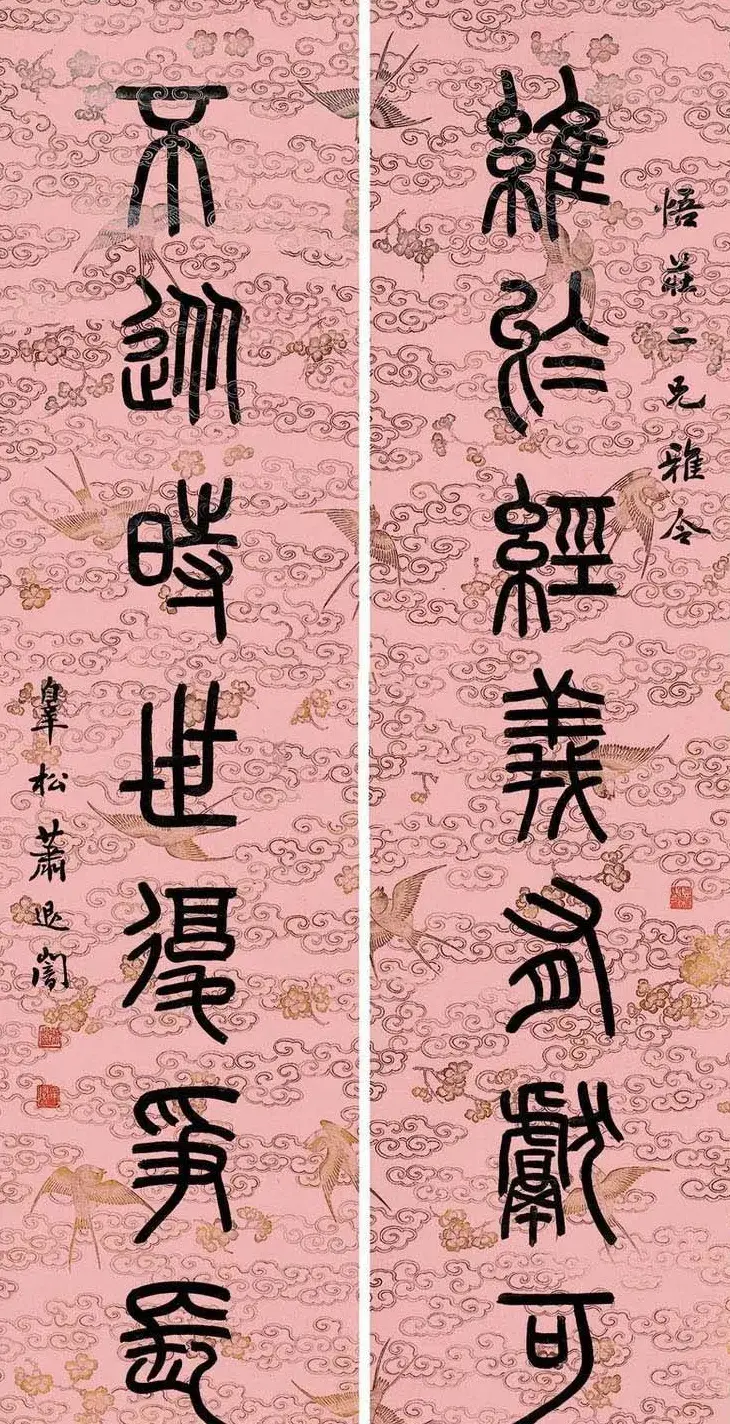 悟莊二兄雅令
維於經義有獻可
不從時世得爭長
皋松蕭退闇